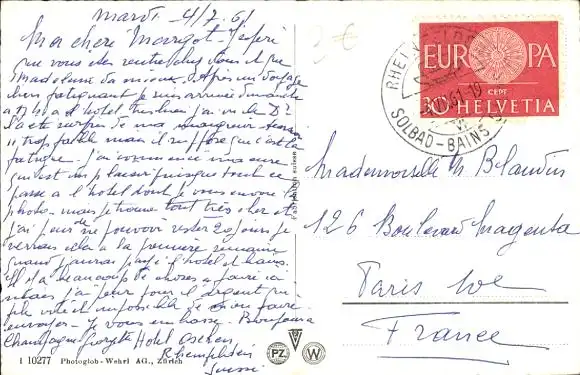 mardi 4/7 61
Ma chère Margot. J'espère
que vous êtes rentrée plus tôt et que
Madeleine va mieux. Après un voyage
bien fatiguant je suis arrivée dimanche
à l'hôtel hier j'ai vu le Dr
il a été surpris de ma maigreur
trop faible mais il suppose que c'est la
fatigue. J'ai commencé ma cure
qui est un plaisir puisque tout ce
passe à l'hôtel dont je vous envoie la
photo - mais je trouve tout très cher et
j'ai peur de ne pouvoir rester 20 jours je
verrais cela à la première semaine
quand j'aurai payé l'hôtel et bains.
Il y a beaucoup de choses à faire ici
mais j'ai peur pour l'argent qui
file vite et impossible de s'en faire
envoyer - Je vous embrasse. Bonjour à
Champagne Georgette Hotel
Rheinfelden
Suisse
3 €
RHEINFELDEN
61-19
SOLBAD-BAINS
EUROPA
CEPT
30 HELVETIA
Mademoiselle M. Blaudin
126 Boulevard Magenta
Paris 10e
France
I 10277 Photoglob-Wehrli AG., Zürich
PZ W